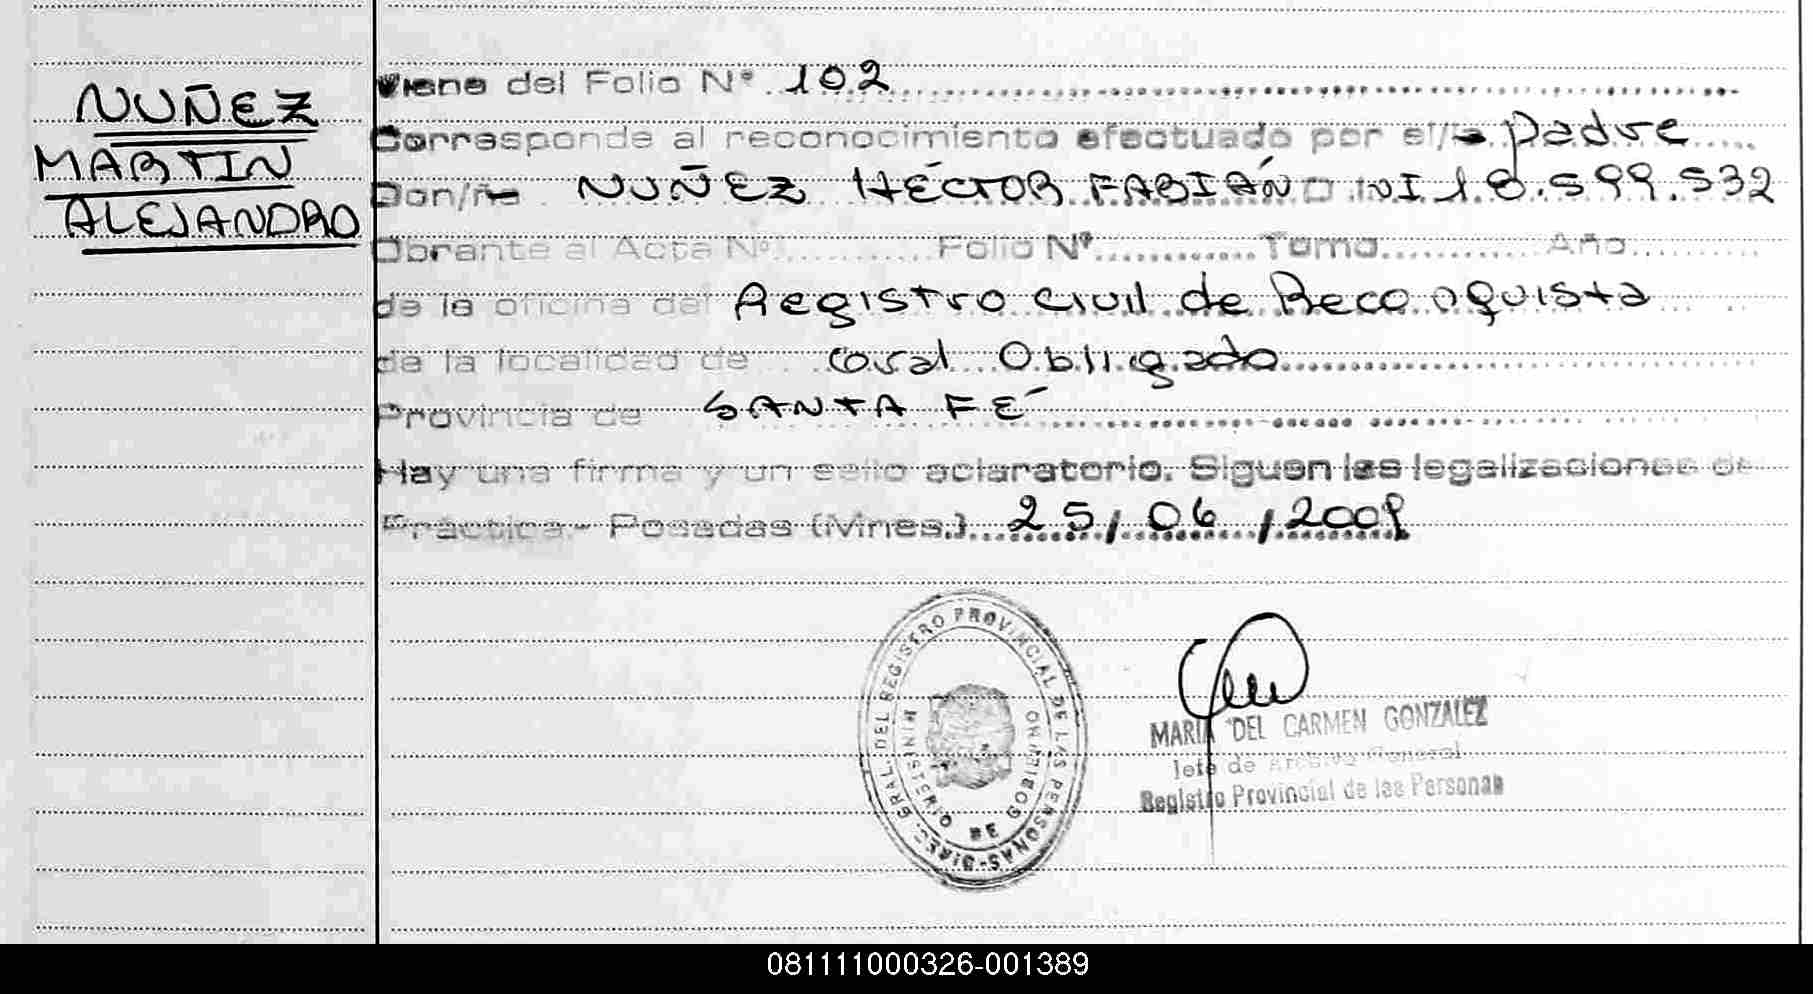 NUÑEZ
MARTIN
ALEJANDRO
Viene del Folio Nº 102
Corresponde al reconocimiento efectuado por el/la padre
Don/ña NUÑEZ HÉCTOR FABIÁN D NI 18.599.532
Obrante al Acta Nº Folio Nº Tomo Año
de la oficina del Registro Civil de Reconquista
de la localidad de Gral Obligado
Provincia de SANTA FÉ
Hay una firma y un sello aclaratorio. Siguen las legalizaciones de
Práctica - Posadas (Mnes.) 25/06/2009
DIREC. GRAL. DEL REGISTRO PROVINCIAL DE LAS PERSONAS
MINISTERIO DE GOBIERNO
MARIA DEL CARMEN GONZALEZ
Jefe de Archivo General
Registro Provincial de las Personas
081111000326-001389